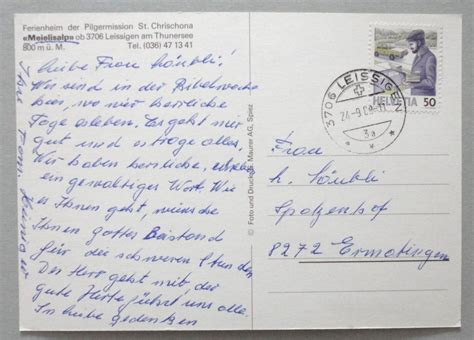 Ferienheim der Pilgermission St. Chrischona
«Meielisalp» ob 3706 Leissigen am Thunersee
800 m ü. M. Tel. (036) 47 13 41
Liebe Frau
Wir sind in der Bibelwoche
hier, wo wir herrliche
Tage erleben. Es geht mir
gut und ertrage alles.
Wir haben herrliche,
ein gewaltiges Wort. Wie
es Ihnen geht, wünsche
Ihnen Gottes Beistand
für die schweren Stunden
Der Herr geht mit, der
gute Hirte führt uns alle.
In Liebe gedenken
Ihre Fam.
© Foto und Druck: A. Maurer AG, Spiez
3706 LEISSIGEN
24-9.
3a
HELVETIA 50
Frau
h.
Spatzenhof
8272 Ermatingen